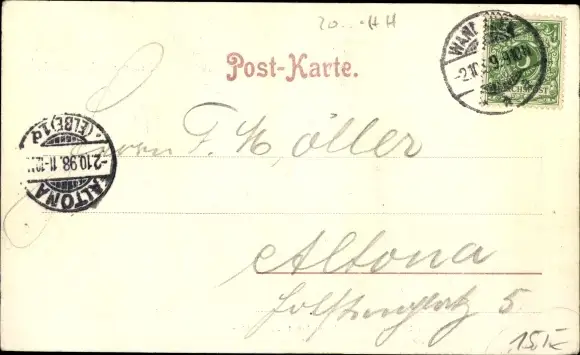 20... HH
Post-Karte.
WANDSBEK
-2.10.98.9-10V
REICHSPOST
Herrn F. Möller
ALTONA
-2.10.98.11-12V.
(ELBE) 1d
Altona
5
15.-